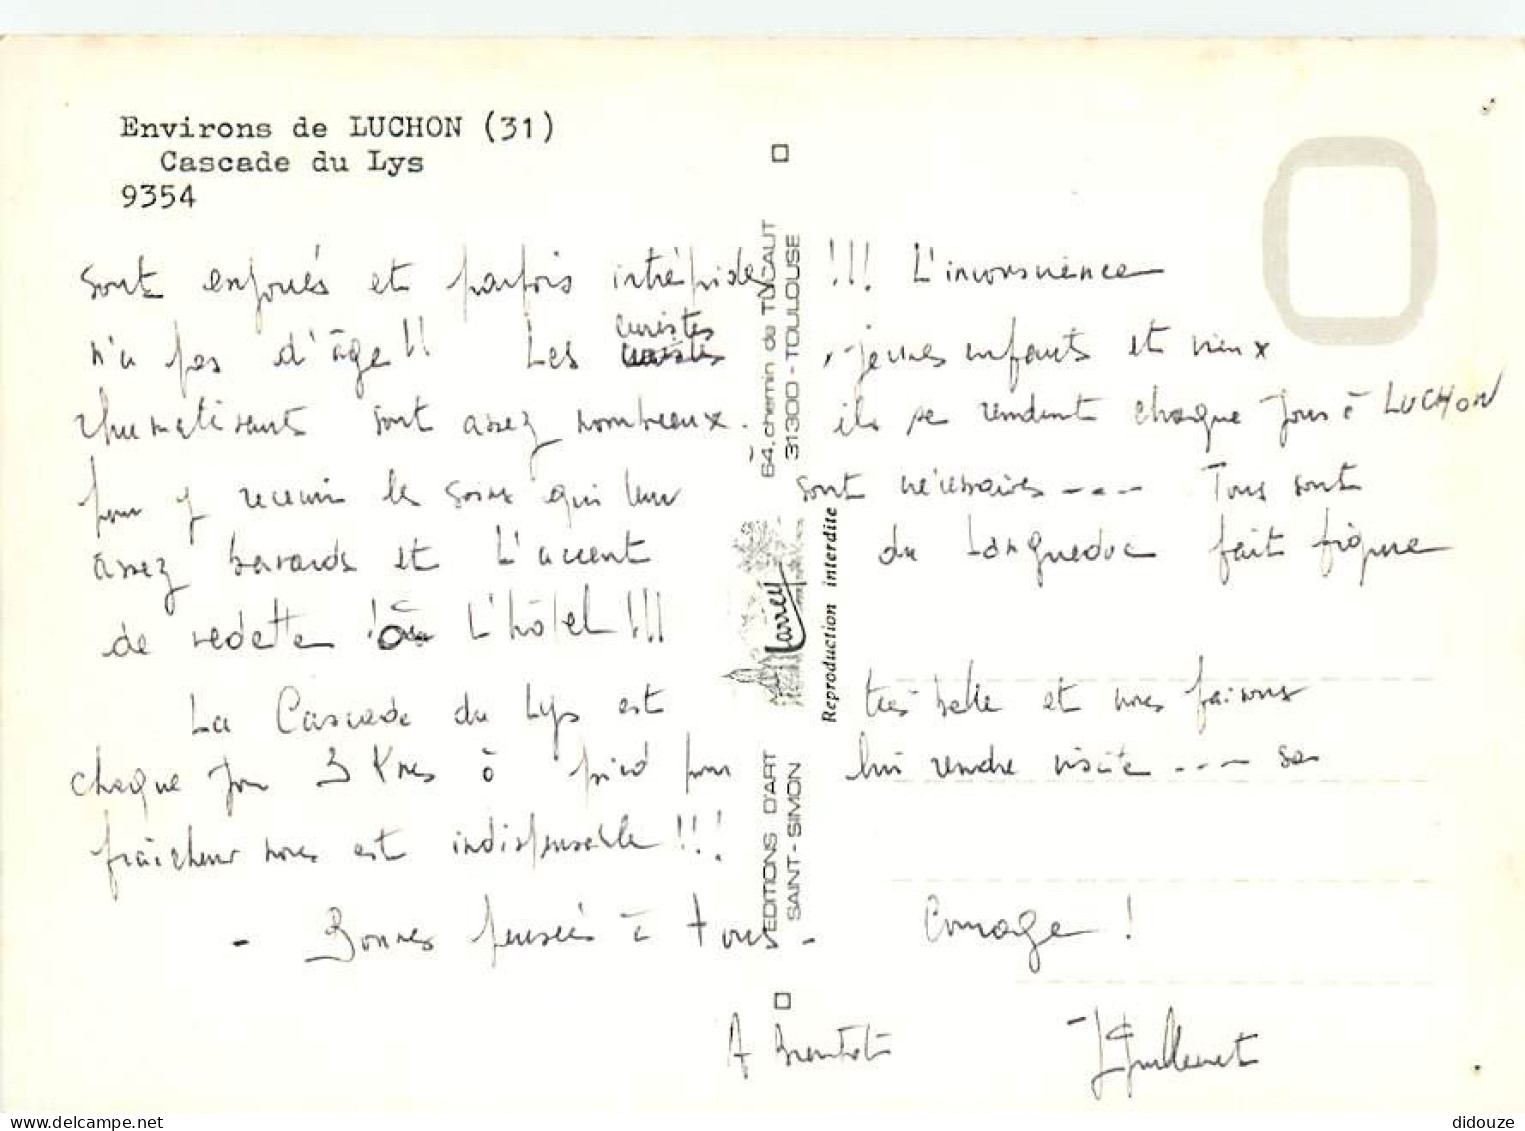 Environs de LUCHON (31)
Cascade du Lys
9354
sont enjoués et parfois intrépides !!! L'inconscience
n'a pas d'âge !! Les curistes, jeunes enfants et vieux
rhumatisants sont assez nombreux. ils se rendent chaque jour à LUCHON
pour y recevoir les soins qui leur sont nécessaires ---- Tous sont
assez bavards et L'accent du Languedoc fait figure
de vedette à L'hôtel !!!
La Cascade du Lys est très belle et nous faisons
chaque jour 3 Kms à pied pour lui rendre visite ---- sa
fraîcheur nous est indispensable !!!
- Bonnes pensées à tous - Courage !
A Bientôt
64, chemin de TUCAUT
31300 - TOULOUSE
Larrey
Reproduction interdite
EDITIONS D'ART
SAINT-SIMON
didouze